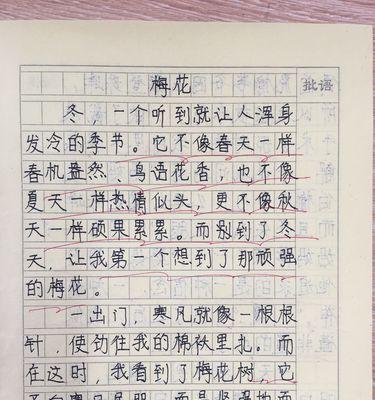 梅花
批语
冬，一个听到就让人浑身
发冷的季节。它不像春天一样
春机盎然、鸟语花香，也不像
夏天一样热情似头，更不像秋
天一样硕果累累。而到了冬
天，让我第一个想到了那顽强
的梅花。
一出门，寒风就像一根根
针，使劲往我的棉袄里扎。而
在这时，我看到了梅花树，它